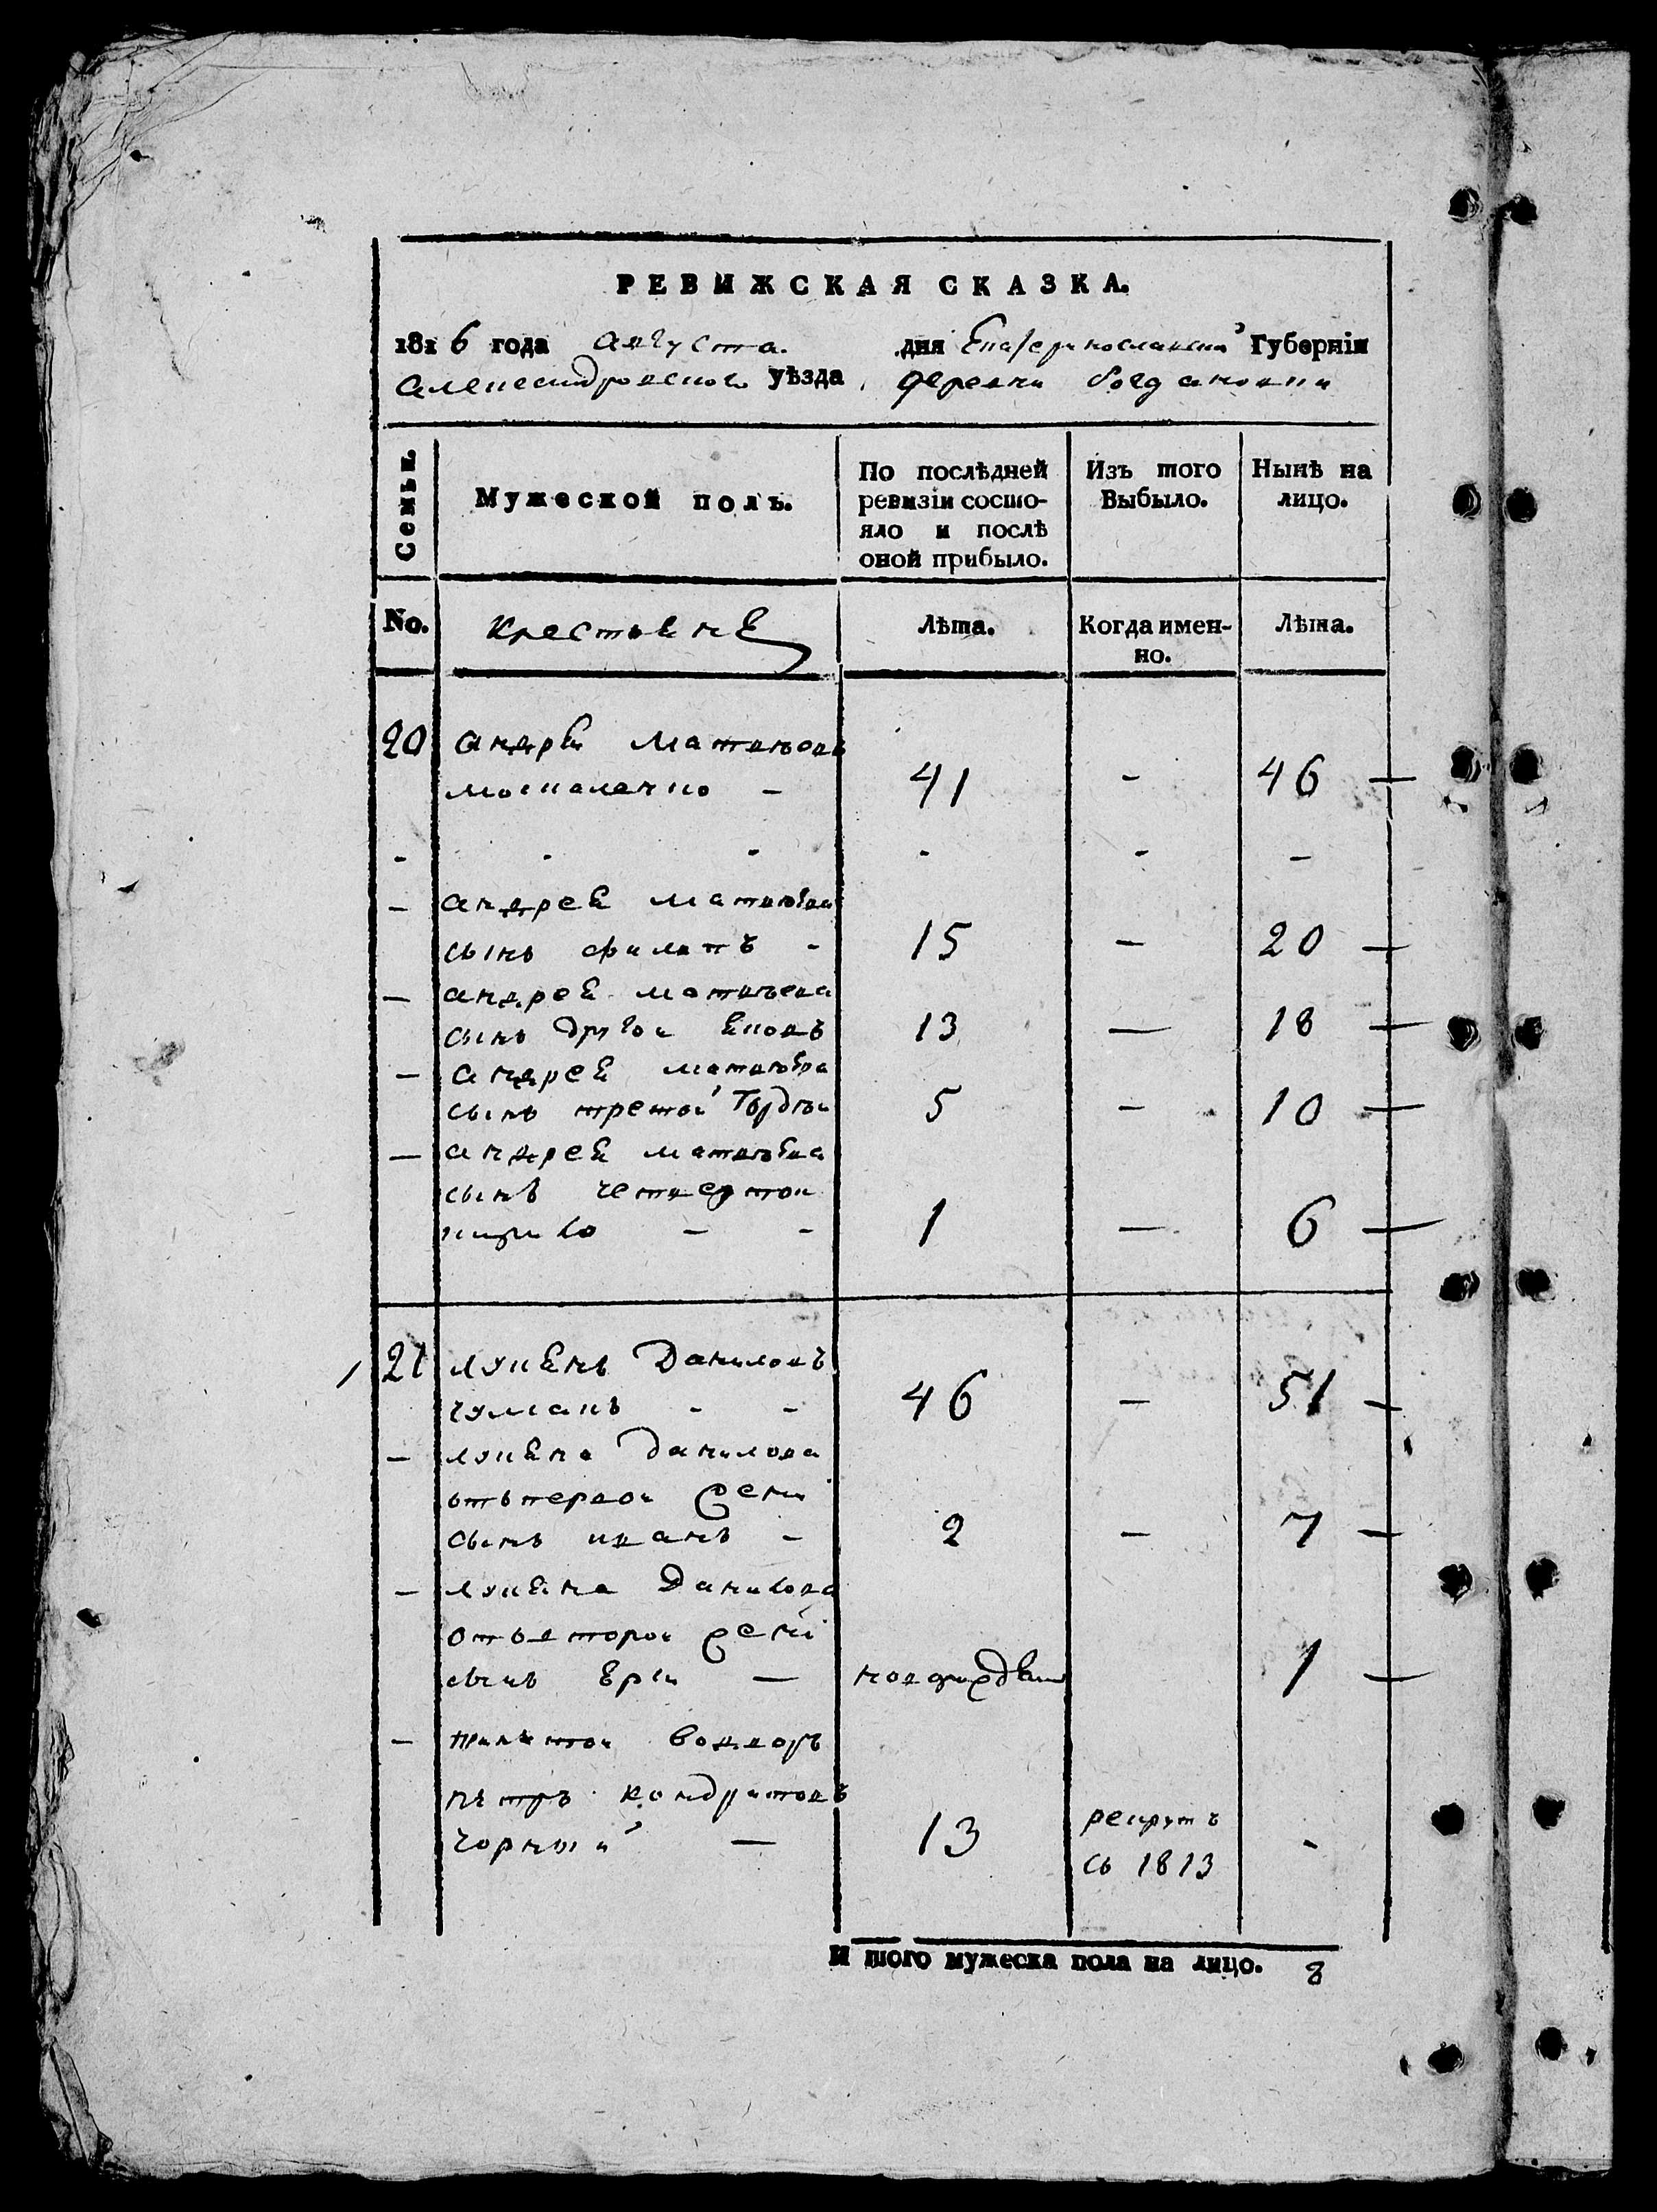 РЕВИЖСКАЯ СКАЗКА.
1816 года августа дня Екатеринославской Губерніи
александровского уѣзда, деревни богдановки
Семьи.
Мужеской полъ.
По послѣдней ревизіи состояло и послѣ оной прибыло.
Изъ того Выбыло.
Нынѣ на лицо.
No. крестьяне Лѣта. Когда именно. Лѣта.
20 андрей матвѣевъ
москаленко - 41 - 46
- - - - - -
- андрея матвѣева
сынъ филипъ - 15 - 20
- андрея матвѣева
сынъ другои яковъ 13 — 18
- андрея матвѣева
сынъ третой гордѣи 5 - 10
- андрея матвѣева
сынъ четвертои
кирило - - 1 — 6
21 лукянъ Даниловъ
чумакъ - - 46 - 51
- лукяна данилова
отъ первои жени
сынъ иванъ - 2 - 7
- лукяна Данилова
отъ второи жени
сынъ — новорожден 1
-
петръ кондратовъ
чорный — 13 рекрутъ -
съ 1813
И того мужеска пола на лицо. 8